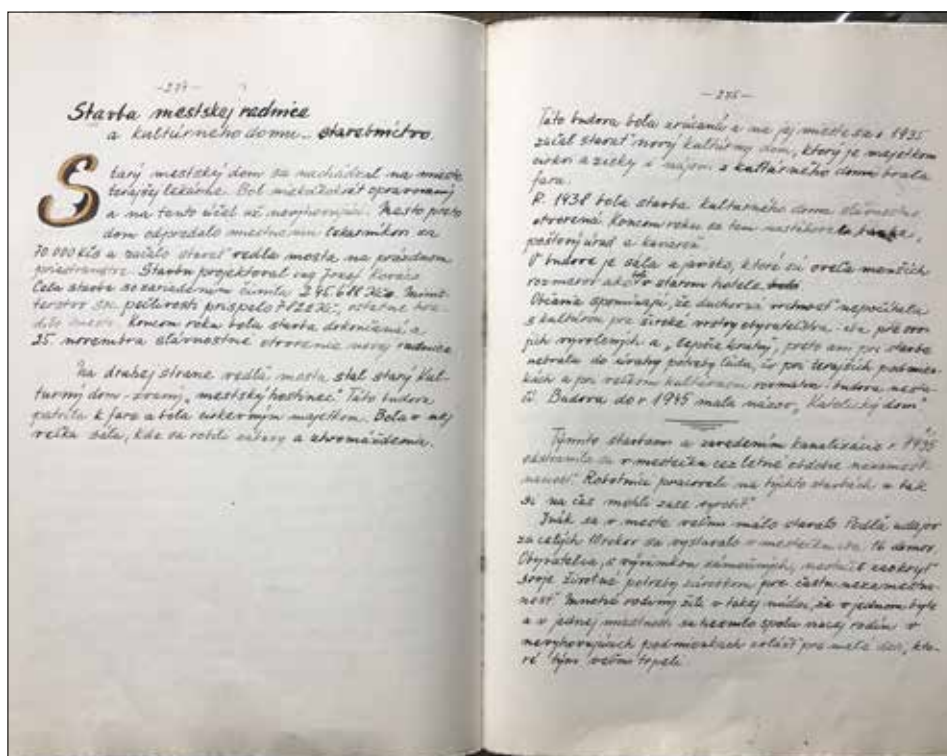 Stavba mestskej radnice
a kultúrneho domu.. staviteľníctvo.
Starý mestský dom sa nachádzal na mieste
terajšej lekárne. Bol niekoľkokrát opravovaný
a na tento účel už nevyhovujúci. Mesto preto
dom odpredalo miestnemu lekárnikovi za
70 000 Kčo a začalo stavať vedľa mosta na prázdnom
priestranstve. Stavbu projektoval ing Jozef Kováčo
Celá stavba so zariadením činila Kčo.
terstvo soc. pečlivosti prispelo Kčo, ostatné hra-
dilo mesto. Koncom roku bola stavba dokončená a
25. novembra slávnostné otvorenie novej radnice
Na druhej strane vedľa mosta stál starý Kul-
túrny dom - zvaný „mestský hostinec". Táto budova
patrila k fare a bola cirkevným majetkom. Bola v nej
veľká sála, kde sa robili zábavy a zhromaždenia.
Táto budova bola zrúcaná a na jej mieste sa r. 1935
začal stavať nový kultúrny dom, ktorý je majetkom
cirkvi a zisky i nájom z kultúrného domu brala
fara.
R. 1938 bola stavba kulturného domu slávnostne
otvorená. Koncom roku sa tam nasťahovala banka,
poštový úrad a kaviareň
V budove je sála a javisko, ktoré sú oveľa menších
rozmerov ako v starom hotele
Občania spomínajú, že duchovná vrchnosť nepočítala
s kultúrou pre široké vrstvy obyvateľstva - iba pre svo-
jich vyvolených a „lepšie kruhy", preto ani pri stavbe
nebrala do úvahy potreby ľudu, čo pri terajších podmien-
kach a pri veľkom kultúrnom rozmachu budova nesta-
čí. Budova do r. 1945 mala názov „Katolícky dom"
Týmito stavbami a zavedením kanalizácie r. 1935
odstránila sa v mestečku cez letné obdobie nezamest-
nanosť. Robotníci pracovali na týchto stavbách a tak
si na čas mohli zase vyrobiť.
Ináč sa v meste veľmi málo stavalo. Podľa údajov
za celých 10 rokov sa vystavalo v mestečku 16 domov.
Obyvatelia, s výnimkou zámožných,
svoje životné potreby zárobkom pre častú nezamestna-
nosť. Mnohé rodiny žili v takej núdzi, že v jednom byte
a v jednej miestnosti sa tiesnilo spolu viacej rodín v
nevyhovujúcich podmienkach zvlášť pre malé deti, kto-
ré tým veľmi trpeli.